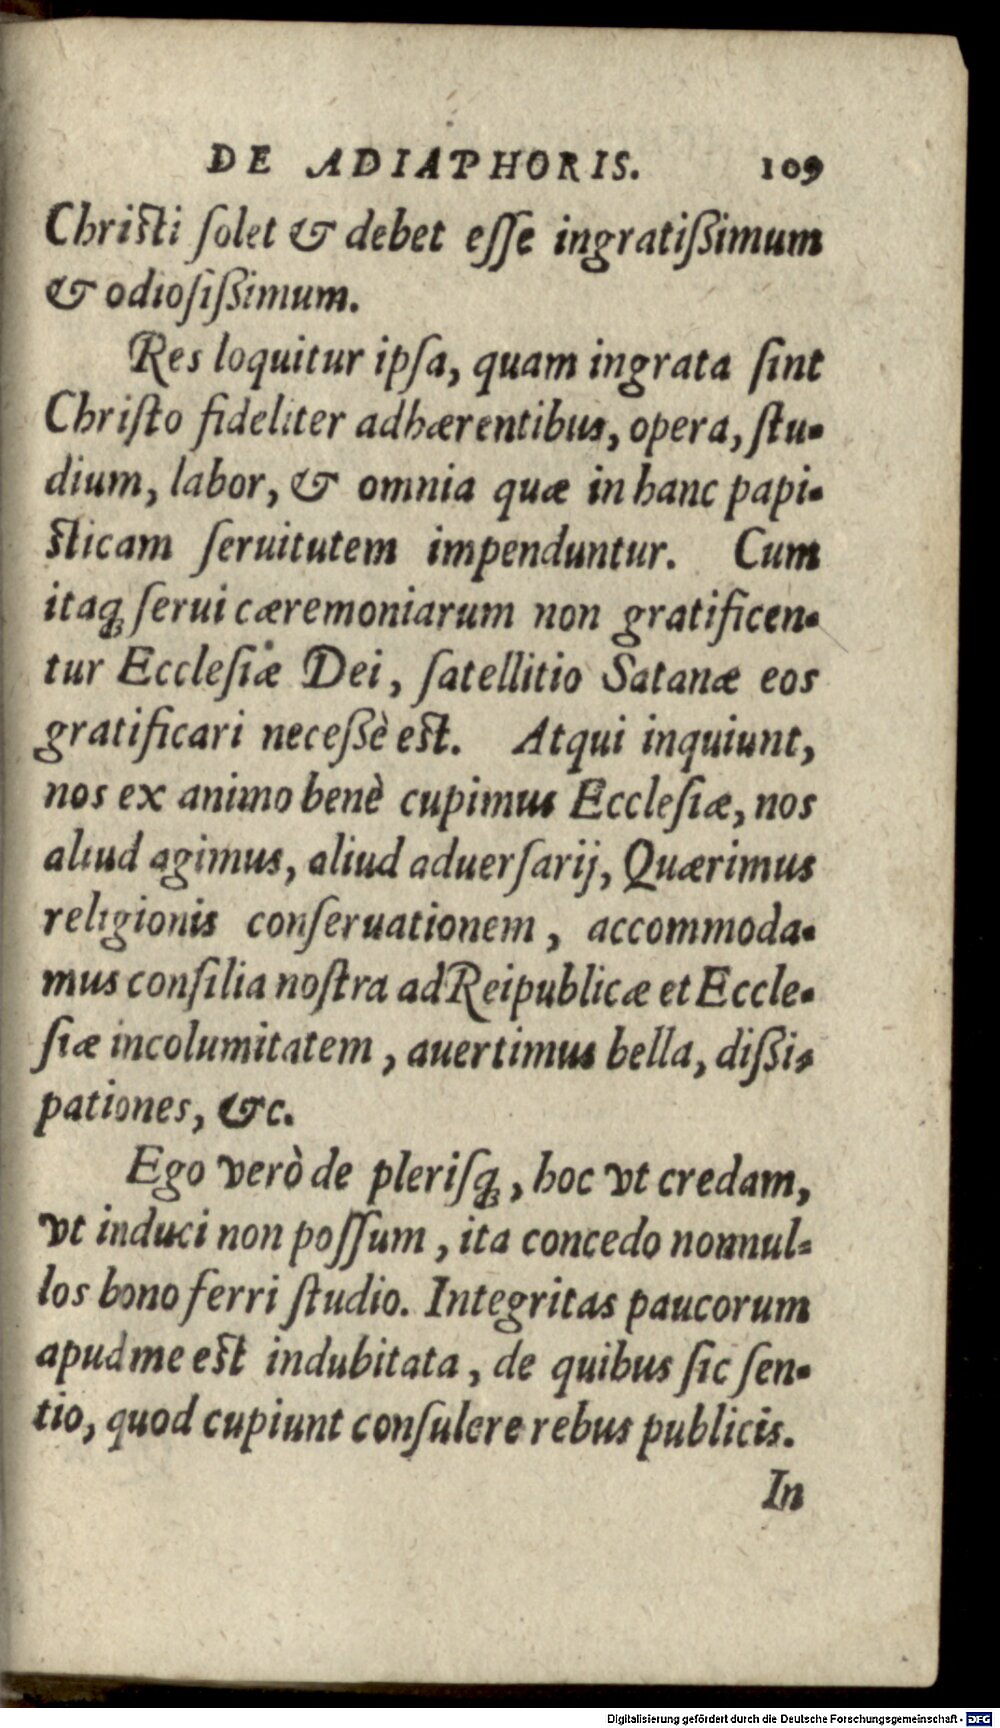 DE ADIAPHORIS. 109
Chriſti ſolet & debet eſſe ingratiſßimum
& odioſiſßimum.
Res loquitur ipſa, quam ingrata ſint
Chriſto fideliter adhærentibus, opera, ſtu-
dium, labor, & omnia quæ in hanc papi-
ſticam ſeruitutem impenduntur. Cum
itaq́; ſerui cæremoniarum non gratificen-
tur Eccleſiæ Dei, ſatellitio Satanæ eos
gratificari neceßè eſt. Atqui inquiunt,
nos ex animo benè cupimus Eccleſiæ, nos
aliud agimus, aliud aduerſarij, Quærimus
religionis conſeruationem, accommoda-
mus conſilia noſtra ad Reipublicæ et Eccle-
ſiæ incolumitatem, auertimus bella, dißi-
pationes, &c.
Ego verò de pleriſq́;, hoc vt credam,
vt induci non poſſum, ita concedo nonnul-
los bono ferri ſtudio. Integritas paucorum
apud me eſt indubitata, de quibus ſic ſen-
tio, quod cupiunt conſulere rebus publicis.
In
Digitalisierung gefördert durch die Deutsche Forschungsgemeinschaft - DFG